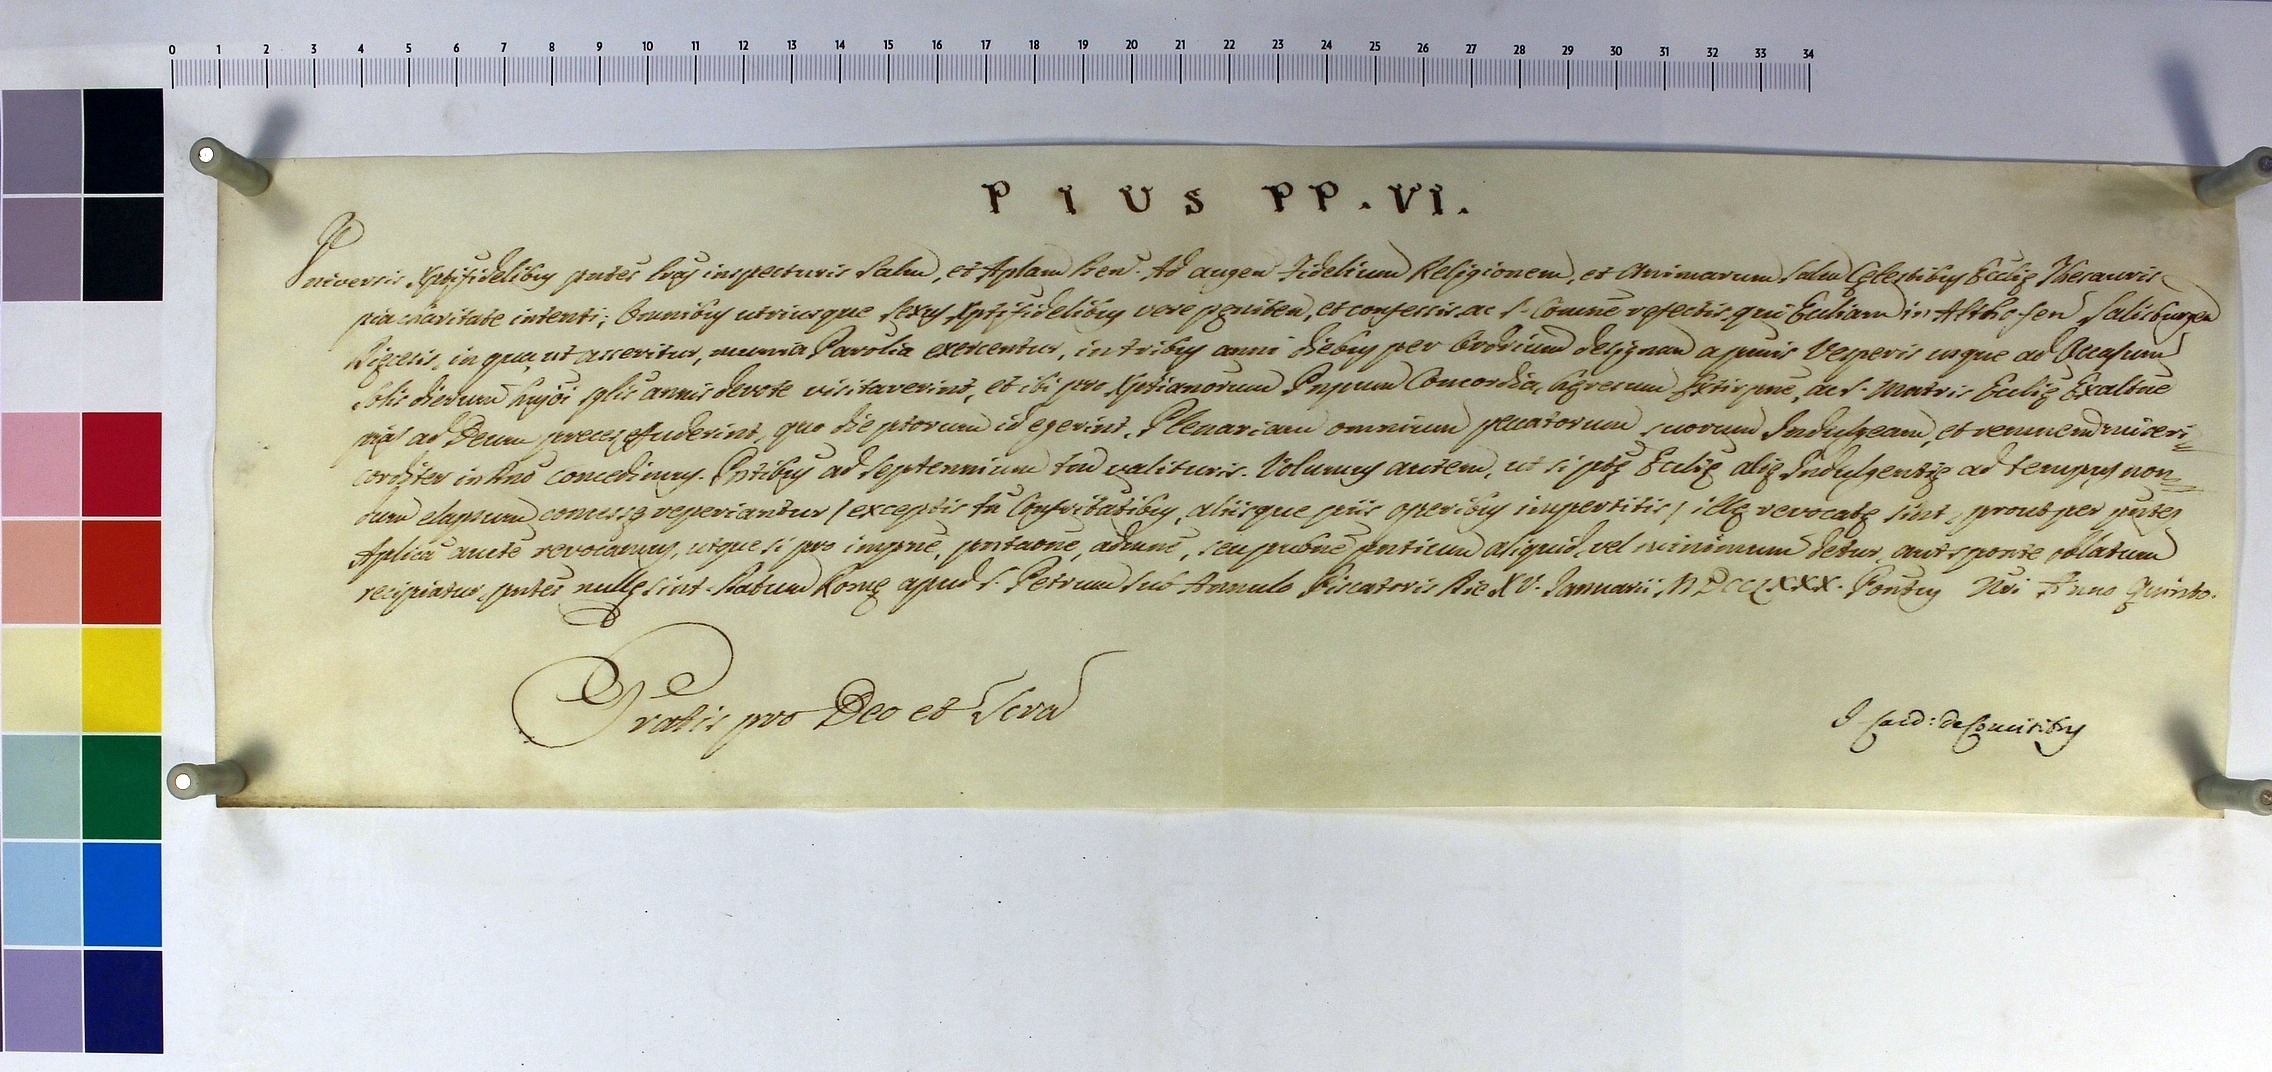 0 1 2 3 4 5 6 7 8 9 10 11 12 13 14 15 16 17 18 19 20 21 22 23 24 25 26 27 28 29 30 31 32 33 34
PIUS PP. VI.
Universis Xptifidelibus pntes lras inspecturis Salm, et Aplam Ben. Ad augen Fidelium Religionem, et Animarum salm Cęlestibus Ecclię Thesauris
pia charitate intenti; Omnibus utriusque sexus Xptifidelibus vere pęniten, et confessis, ac S. Comune refectis, qui Eccliam in Althofen Salisburgen
Dięcesis, in qua, ut asseritur, munia Parolia exercentur, in tribus anni diebus per Ordrium designan a pmis Vesperis usque ad Occasum
Solis dierum hujõi sglis annis devote visitaverint, et ibi pro Xptianorum Pnpum Concordia, hęresum Extirpne, ac S. Matris Ecclię Exaltne
pias ad Deum preces effuderint, quo die ptorum id egerint, Plenariam omnium peccatorum suorum Indulgeam, et remnem miseri=
corditer in Dno concedimus. Pntibus ad septennium tm valituris. Volumus autem, ut si ptę Ecclię alię Indulgentię ad tempus non=
dum elapsum concessę reperiantur / exceptis tn Confribatibus, aliisque piis operibus impertitis / illę revocatę sint, prout per pntes
Aplica aucte revocamus, utque si pro impne, pntaone, admne, seu publne pntium aliquid, vel minimum detur, aut sponte oblatum
recipiatur, pntes nullę sint. Datum Romę apud S. Petrum sub Annulo Piscatoris Die XV. Januarii, MDCCLXXX. Pontus Nri Anno Quinto.
Gratis pro Deo et Scra
I Card: de Comitibus